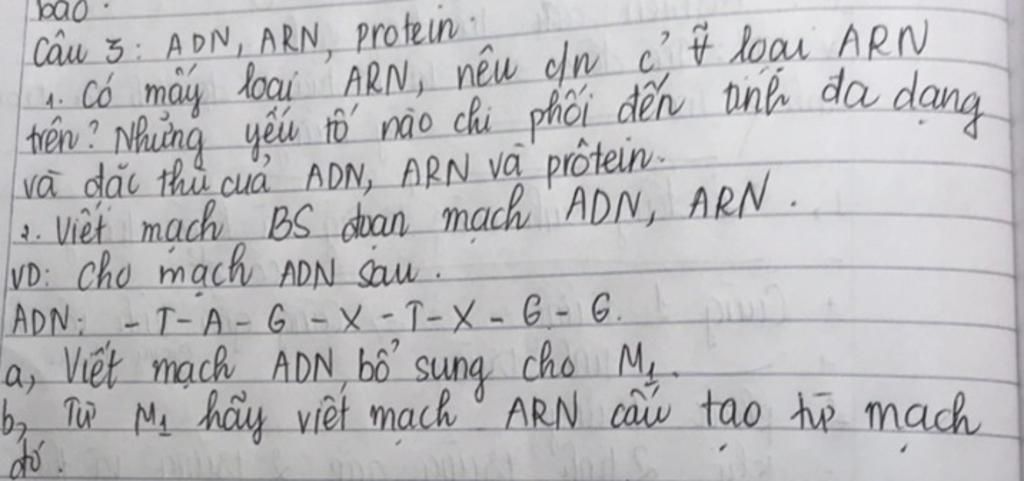 bào.
Câu 3: ADN, ARN, protein.
1. Có mấy loại ARN, nêu c/n c' loại ARN
trên? Những yếu tố nào chi phối đến tính đa dạng
và đặc thù của ADN, ARN và prôtein.
2. Viết mạch BS đoạn mạch ADN, ARN.
VD: Cho mạch ADN sau.
ADN: - T - A - G - X - T - X - G - G.
a, Viết mạch ADN bổ sung cho M1.
b, Từ M1 hãy viết mạch ARN cấu tạo từ mạch
đó.